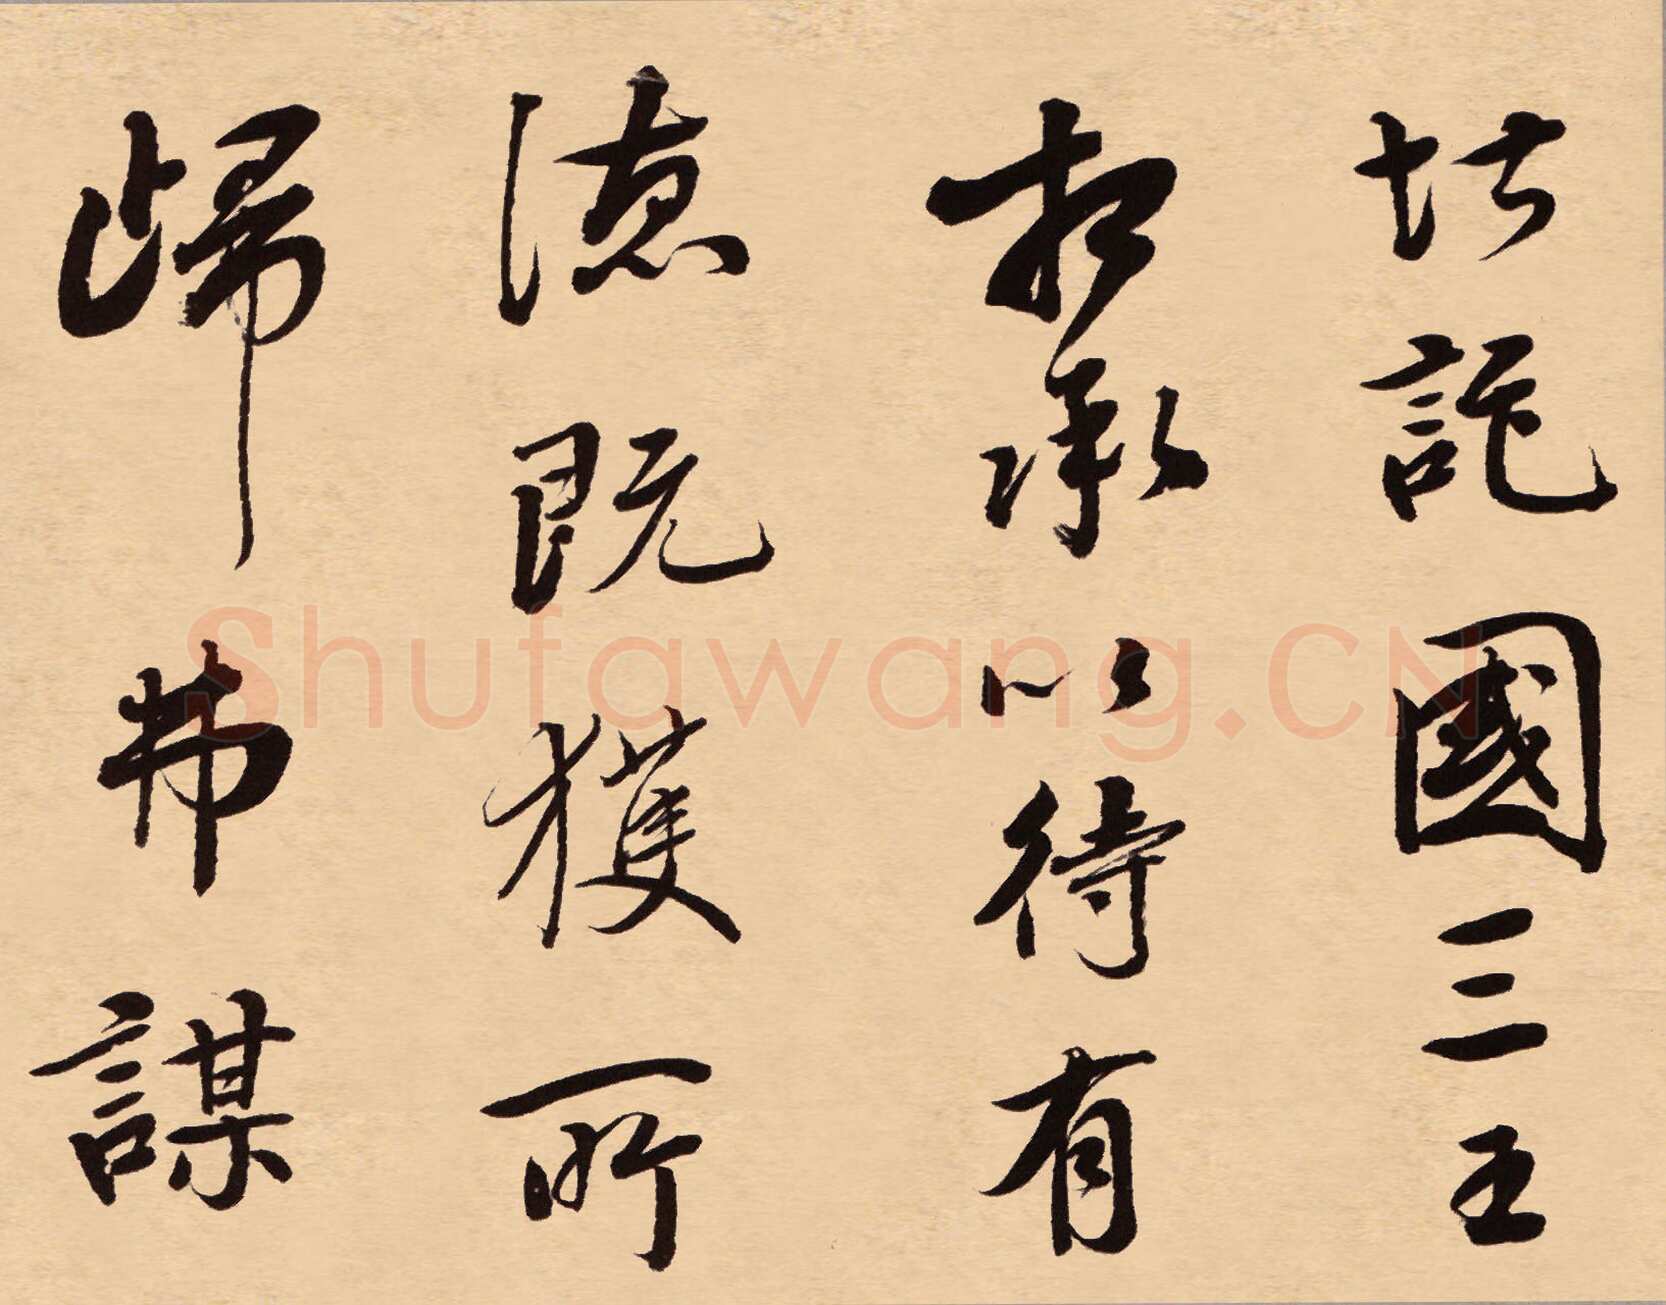 堪託國三王
相承以待有
德既獲所
歸弗謀
Shufawang.CN